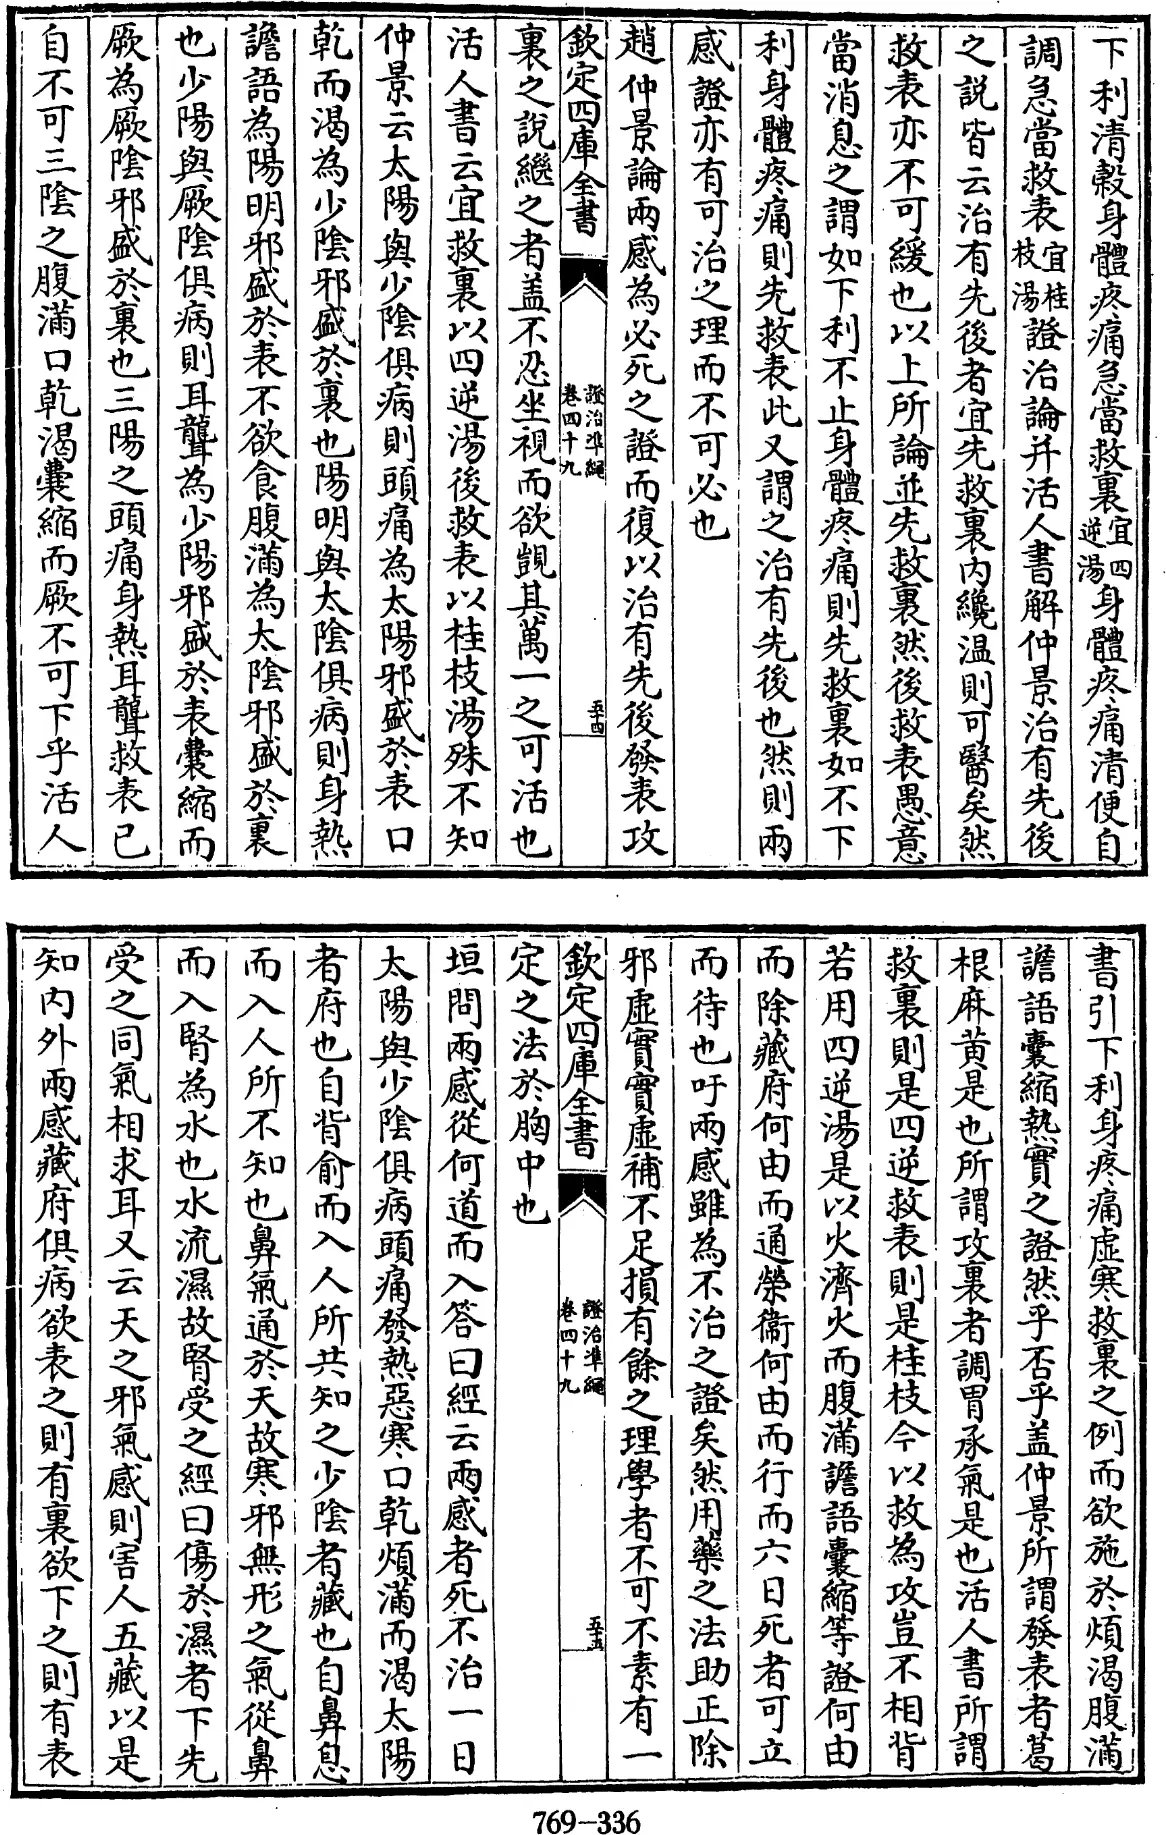 下利清穀身體疼痛急當救裏宜四逆湯身體疼痛清便自
調急當救表宜桂枝湯證治論并活人書解仲景治有先後
之説皆云治有先後者宜先救裏内纔温則可醫矣然
救表亦不可緩也以上所論並先救裏然後救表愚意
當消息之謂如下利不止身體疼痛則先救裏如不下
利身體疼痛則先救表此又謂之治有先後也然則兩
感證亦有可治之理而不可必也
趙仲景論兩感為必死之證而復以治有先後發表攻
欽定四庫全書
證治準繩
卷四十九
五十四
裏之說繼之者盖不忍坐視而欲覬其萬一之可活也
活人書云宜救裏以四逆湯後救表以桂枝湯殊不知
仲景云太陽與少陰俱病則頭痛為太陽邪盛於表口
乾而渴為少陰邪盛於裏也陽明與太陰俱病則身熱
譫語為陽明邪盛於表不欲食腹滿為太陰邪盛於裏
也少陽與厥陰俱病則耳聾為少陽邪盛於表囊縮而
厥為厥陰邪盛於裏也三陽之頭痛身熱耳聾救表已
自不可三陰之腹滿口乾渴囊縮而厥不可下乎活人
書引下利身疼痛虛寒救裏之例而欲施於煩渴腹滿
譫語囊縮熱實之證然乎否乎盖仲景所謂發表者葛
根麻黄是也所謂攻裏者調胃承氣是也活人書所謂
救裏則是四逆救表則是桂枝今以救為攻豈不相背
若用四逆湯是以火濟火而腹滿譫語囊縮等證何由
而除藏府何由而通榮衞何由而行而六日死者可立
而待也吁兩感雖為不治之證矣然用藥之法助正除
邪虛實實虛補不足損有餘之理學者不可不素有一
欽定四庫全書
證治準繩
卷四十九
五十五
定之法於胸中也
垣問兩感從何道而入答曰經云兩感者死不治一日
太陽與少陰俱病頭痛發熱惡寒口乾煩滿而渴太陽
者府也自背俞而入人所共知之少陰者藏也自鼻息
而入人所不知也鼻氣通於天故寒邪無形之氣從鼻
而入腎為水也水流濕故腎受之經曰傷於濕者下先
受之同氣相求耳又云天之邪氣感則害人五藏以是
知内外兩感藏府俱病欲表之則有裏欲下之則有表
769-336